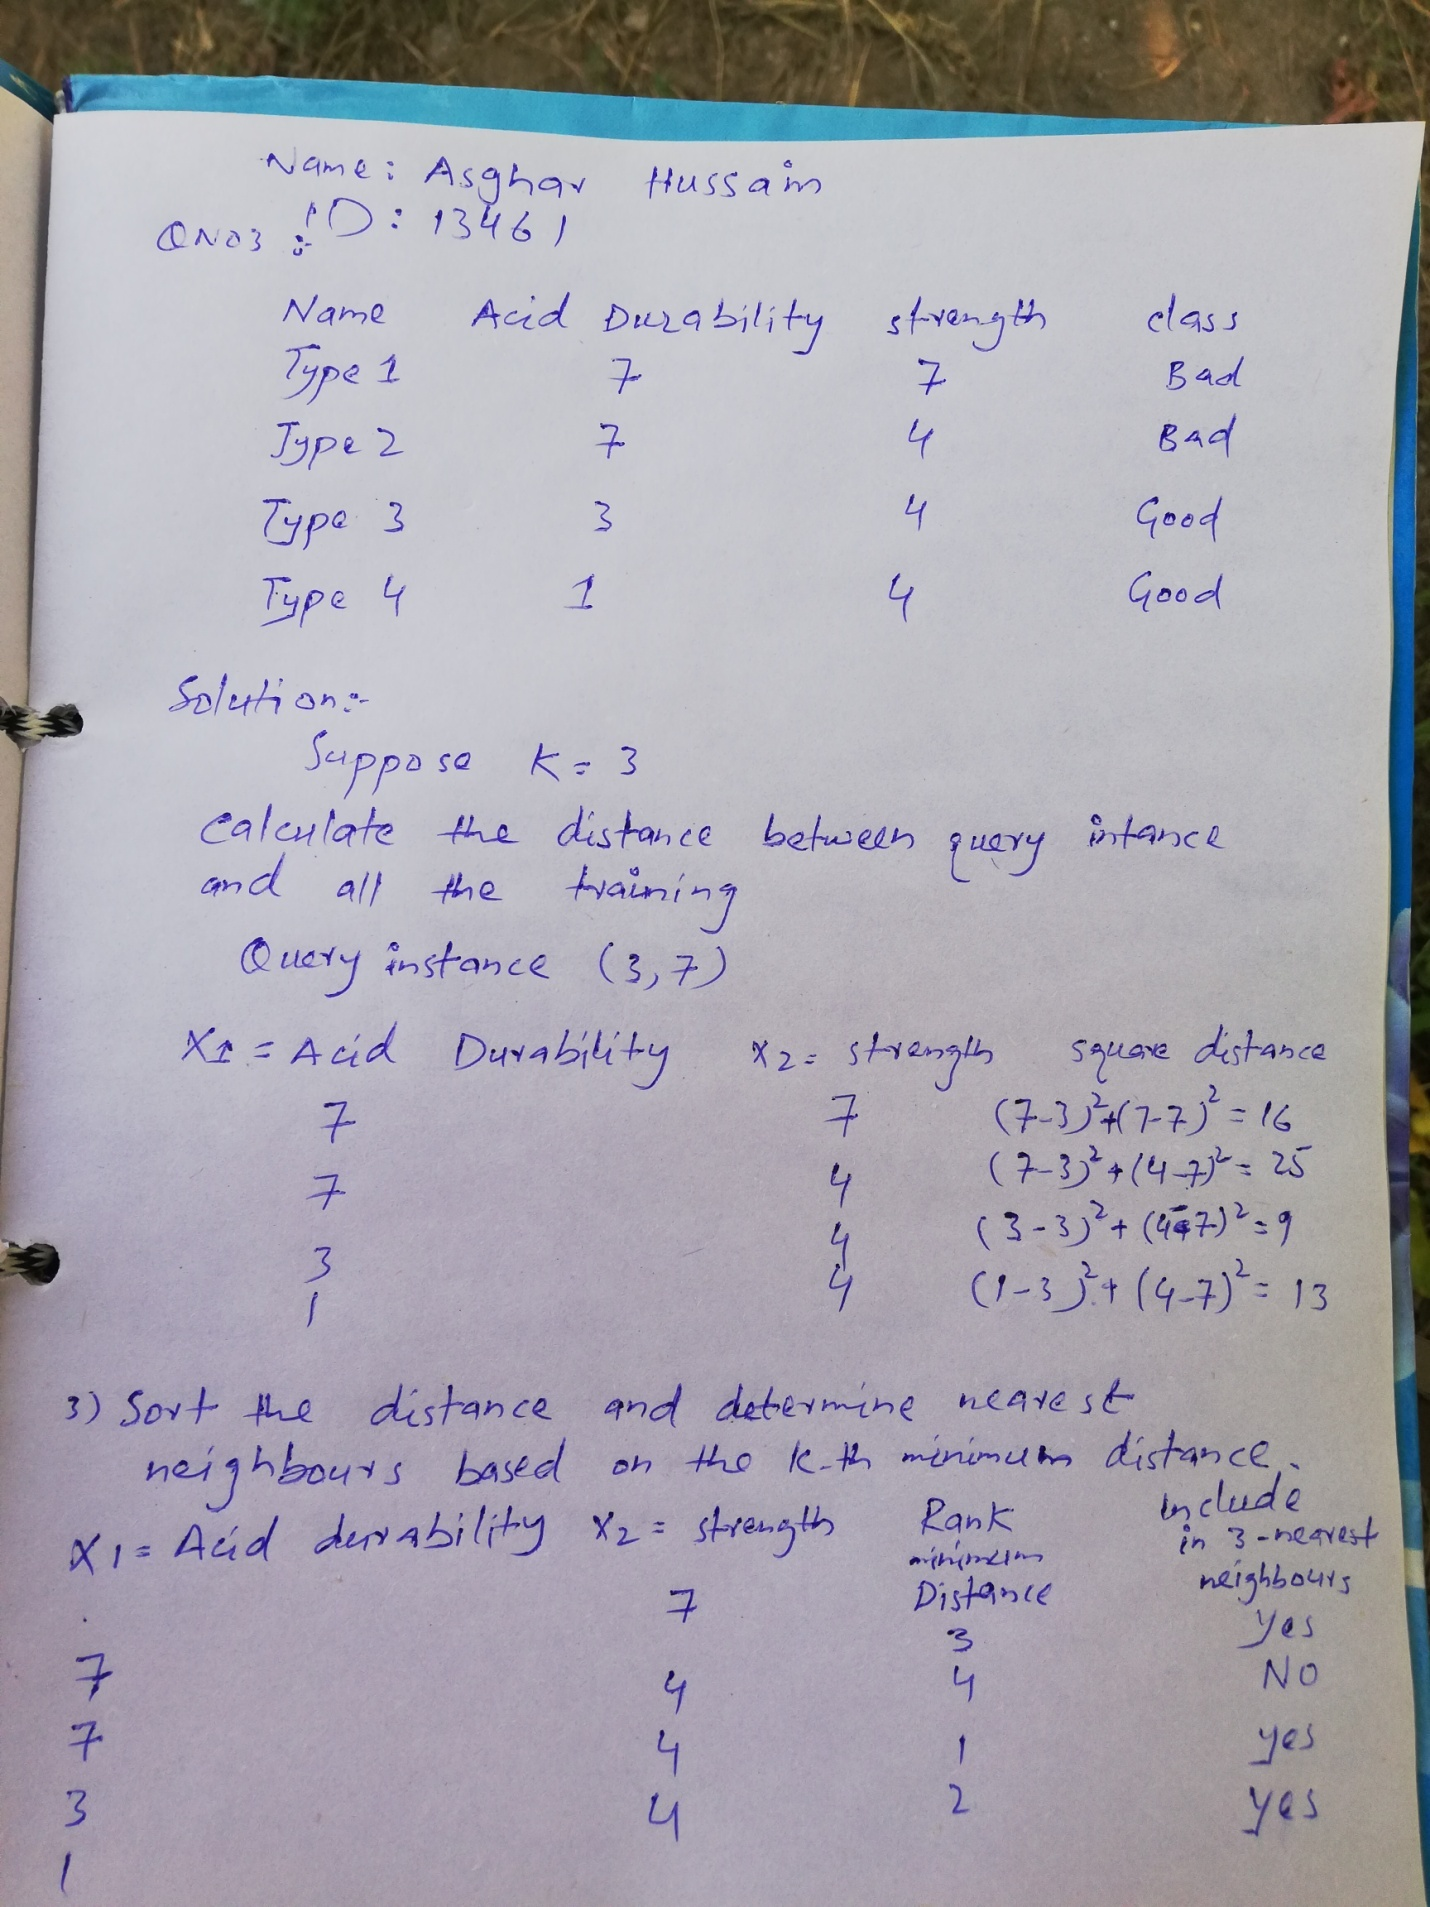 Name: Asghar Hussain
ID: 13461
QNO3 :
Name Acid Durability strength class
Type 1 7 7 Bad
Type 2 7 4 Bad
Type 3 3 4 Good
Type 4 1 4 Good
Solution:-
Suppose K = 3
Calculate the distance between query intance
and all the training
Query instance (3,7)
X1 = Acid Durability X2 = strength square distance
7 7 (7-3)²+(7-7)² = 16
7 4 (7-3)²+(4-7)² = 25
3 4 (3-3)²+(4-7)² = 9
1 4 (1-3)²+(4-7)² = 13
3) Sort the distance and determine nearest
neighbours based on the K-th minimum distance.
X1 = Acid durability X2 = strength Rank minimum Distance Include in 3-nearest neighbours
7 7 3 Yes
7 4 4 NO
3 4 1 yes
1 4 2 yes